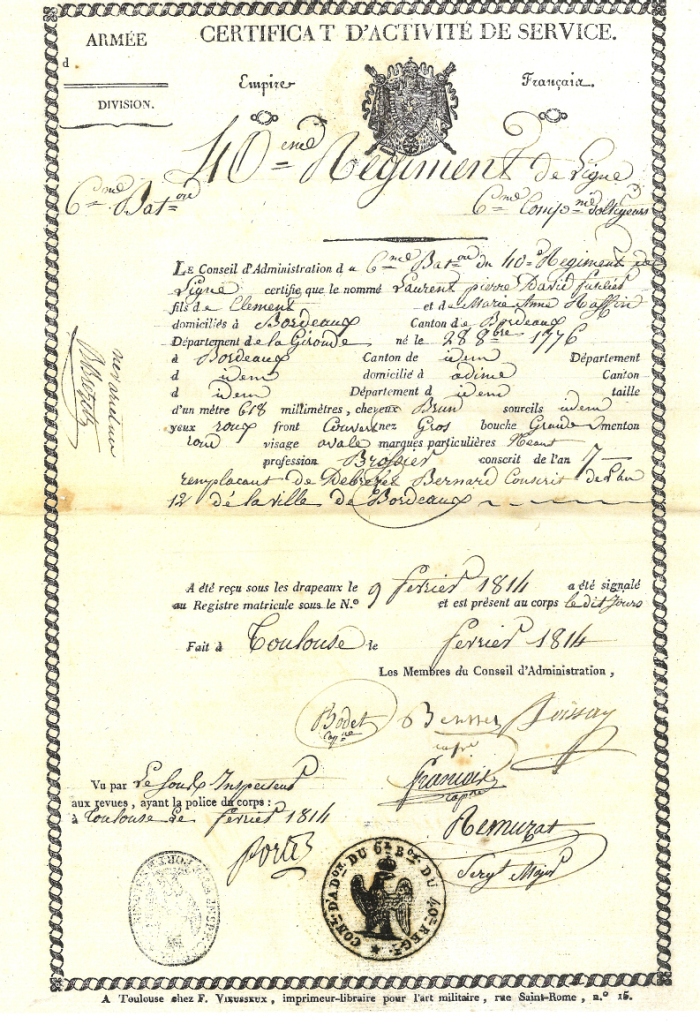 ARMÉE
CERTIFICAT D'ACTIVITÉ DE SERVICE.
d
DIVISION.
Empire Français.
40 eme Regiment de Ligne
6 eme Bat on
6 eme Comp nie Voltigeurs
LE Conseil d'Administration d u 6 me Bat on du 40 e Regiment de
Ligne certifie, que le nommé Laurent pierre David fusilier
fils de Clement et de Marie Anne Raffin
domiciliés à Bordeaux Canton de Bordeaux
Département de la Gironde né le 28 8bre 1776
à Bordeaux Canton de idem Département
d idem domicilié à Canton
d idem Département d idem taille
d'un mètre 618 millimètres, cheveux Brun sourcils idem
yeux roux front Couvert nez Gros bouche Grande menton
rond visage ovale marques particulières Neant
profession Brossier conscrit de l'an 7
remplacant de Bernard Conscrit de l'an
12 dé la ville de Bordeaux
A été reçu sous les drapeaux le 9 fevrier 1814 a été signalé
au Registre matricule sous le N.º et est présent au corps ledit Jours
Fait à Toulouse le fevrier 1814
Les Membres du Conseil d'Administration,
Bodet
Boissay
francois
Vu par Le Sous Inspecteur
aux revues, ayant la police du corps:
à Toulouse le fevrier 1814
Remurat
Sergt Major
CON. D'AD.ON DU 6.E B.ON DU 40.E REG.T
A Toulouse chez F. VIEUSSEUX, imprimeur-libraire pour l'art militaire, rue Saint-Rome, n.º 16.